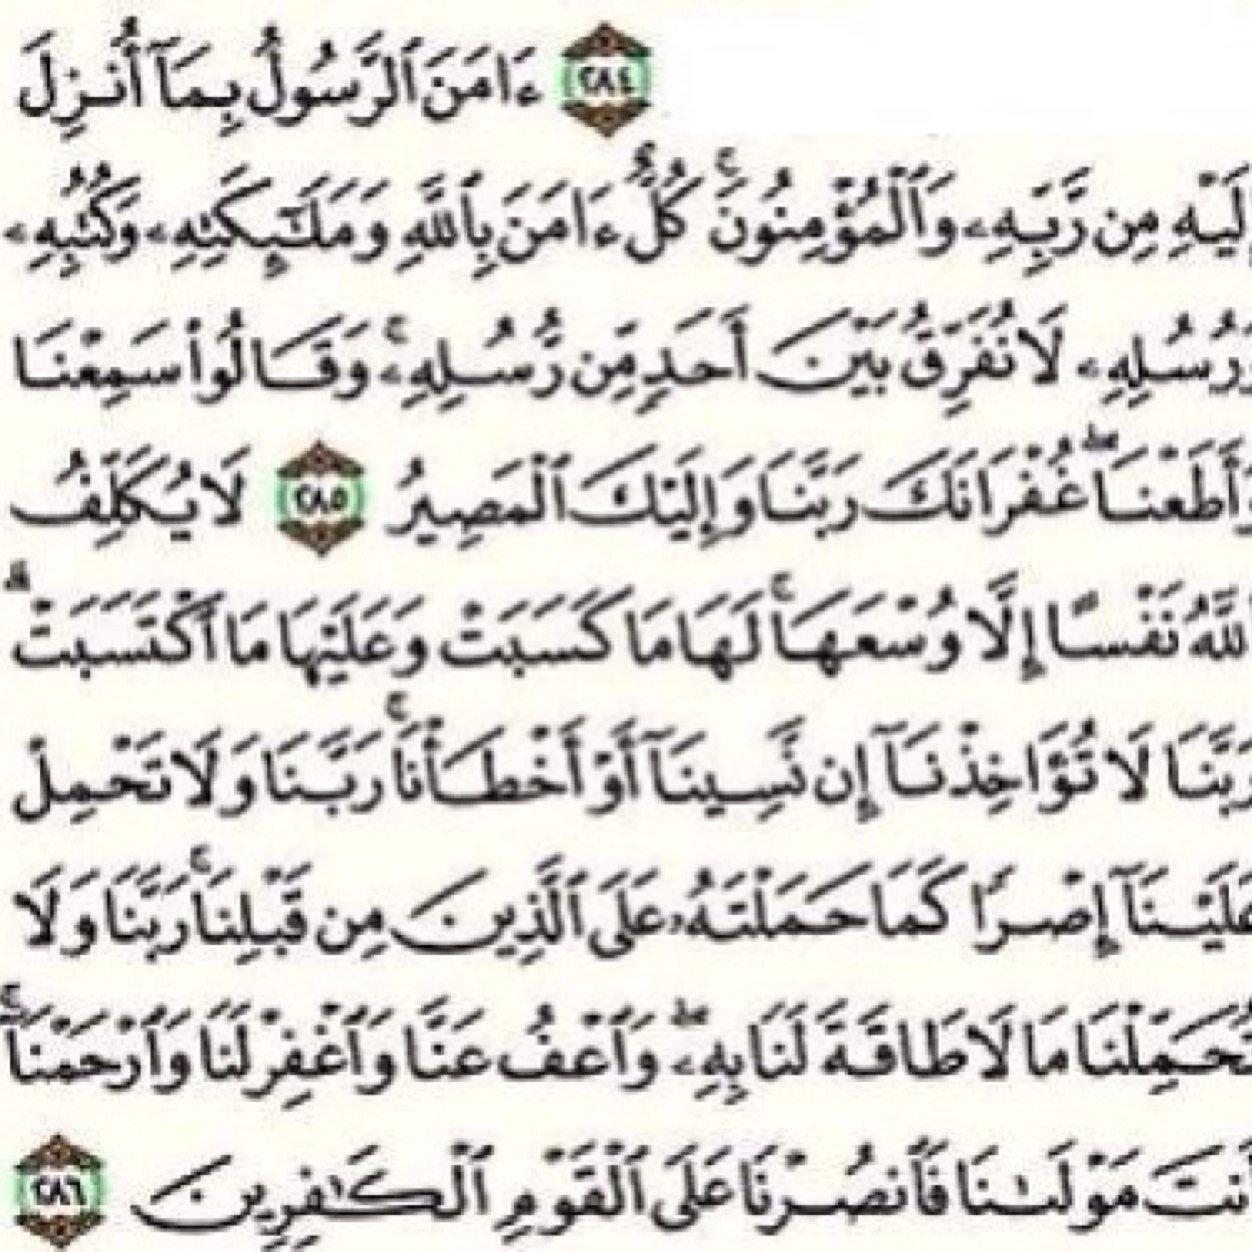 ٢٨٤ ءَامَنَ ٱلرَّسُولُ بِمَآ أُنزِلَ
إِلَيْهِ مِن رَّبِّهِۦ وَٱلْمُؤْمِنُونَۚ كُلٌّ ءَامَنَ بِٱللَّهِ وَمَلَٰٓئِكَتِهِۦ وَكُتُبِهِۦ
وَرُسُلِهِۦ لَا نُفَرِّقُ بَيْنَ أَحَدٍ مِّن رُّسُلِهِۦۚ وَقَالُوا۟ سَمِعْنَا
وَأَطَعْنَاۖ غُفْرَانَكَ رَبَّنَا وَإِلَيْكَ ٱلْمَصِيرُ ٢٨٥ لَا يُكَلِّفُ
ٱللَّهُ نَفْسًا إِلَّا وُسْعَهَاۚ لَهَا مَا كَسَبَتْ وَعَلَيْهَا مَا ٱكْتَسَبَتْۗ
رَبَّنَا لَا تُؤَاخِذْنَآ إِن نَّسِينَآ أَوْ أَخْطَأْنَاۚ رَبَّنَا وَلَا تَحْمِلْ
عَلَيْنَآ إِصْرًا كَمَا حَمَلْتَهُۥ عَلَى ٱلَّذِينَ مِن قَبْلِنَاۚ رَبَّنَا وَلَا
تُحَمِّلْنَا مَا لَا طَاقَةَ لَنَا بِهِۦۖ وَٱعْفُ عَنَّا وَٱغْفِرْ لَنَا وَٱرْحَمْنَآۚ
أَنتَ مَوْلَىٰنَا فَٱنصُرْنَا عَلَى ٱلْقَوْمِ ٱلْكَٰفِرِينَ ٢٨٦